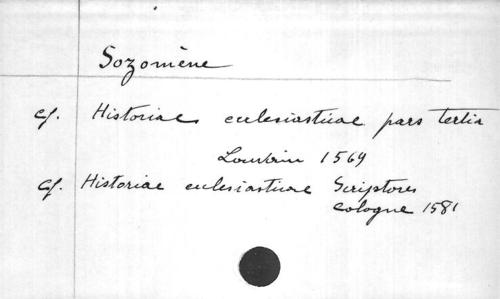 Sozomène
cf. Historiae ecclesiasticae pars tertia
Louvain 1569
cf. Historiae ecclesiasticae Scriptores
Cologne 1581